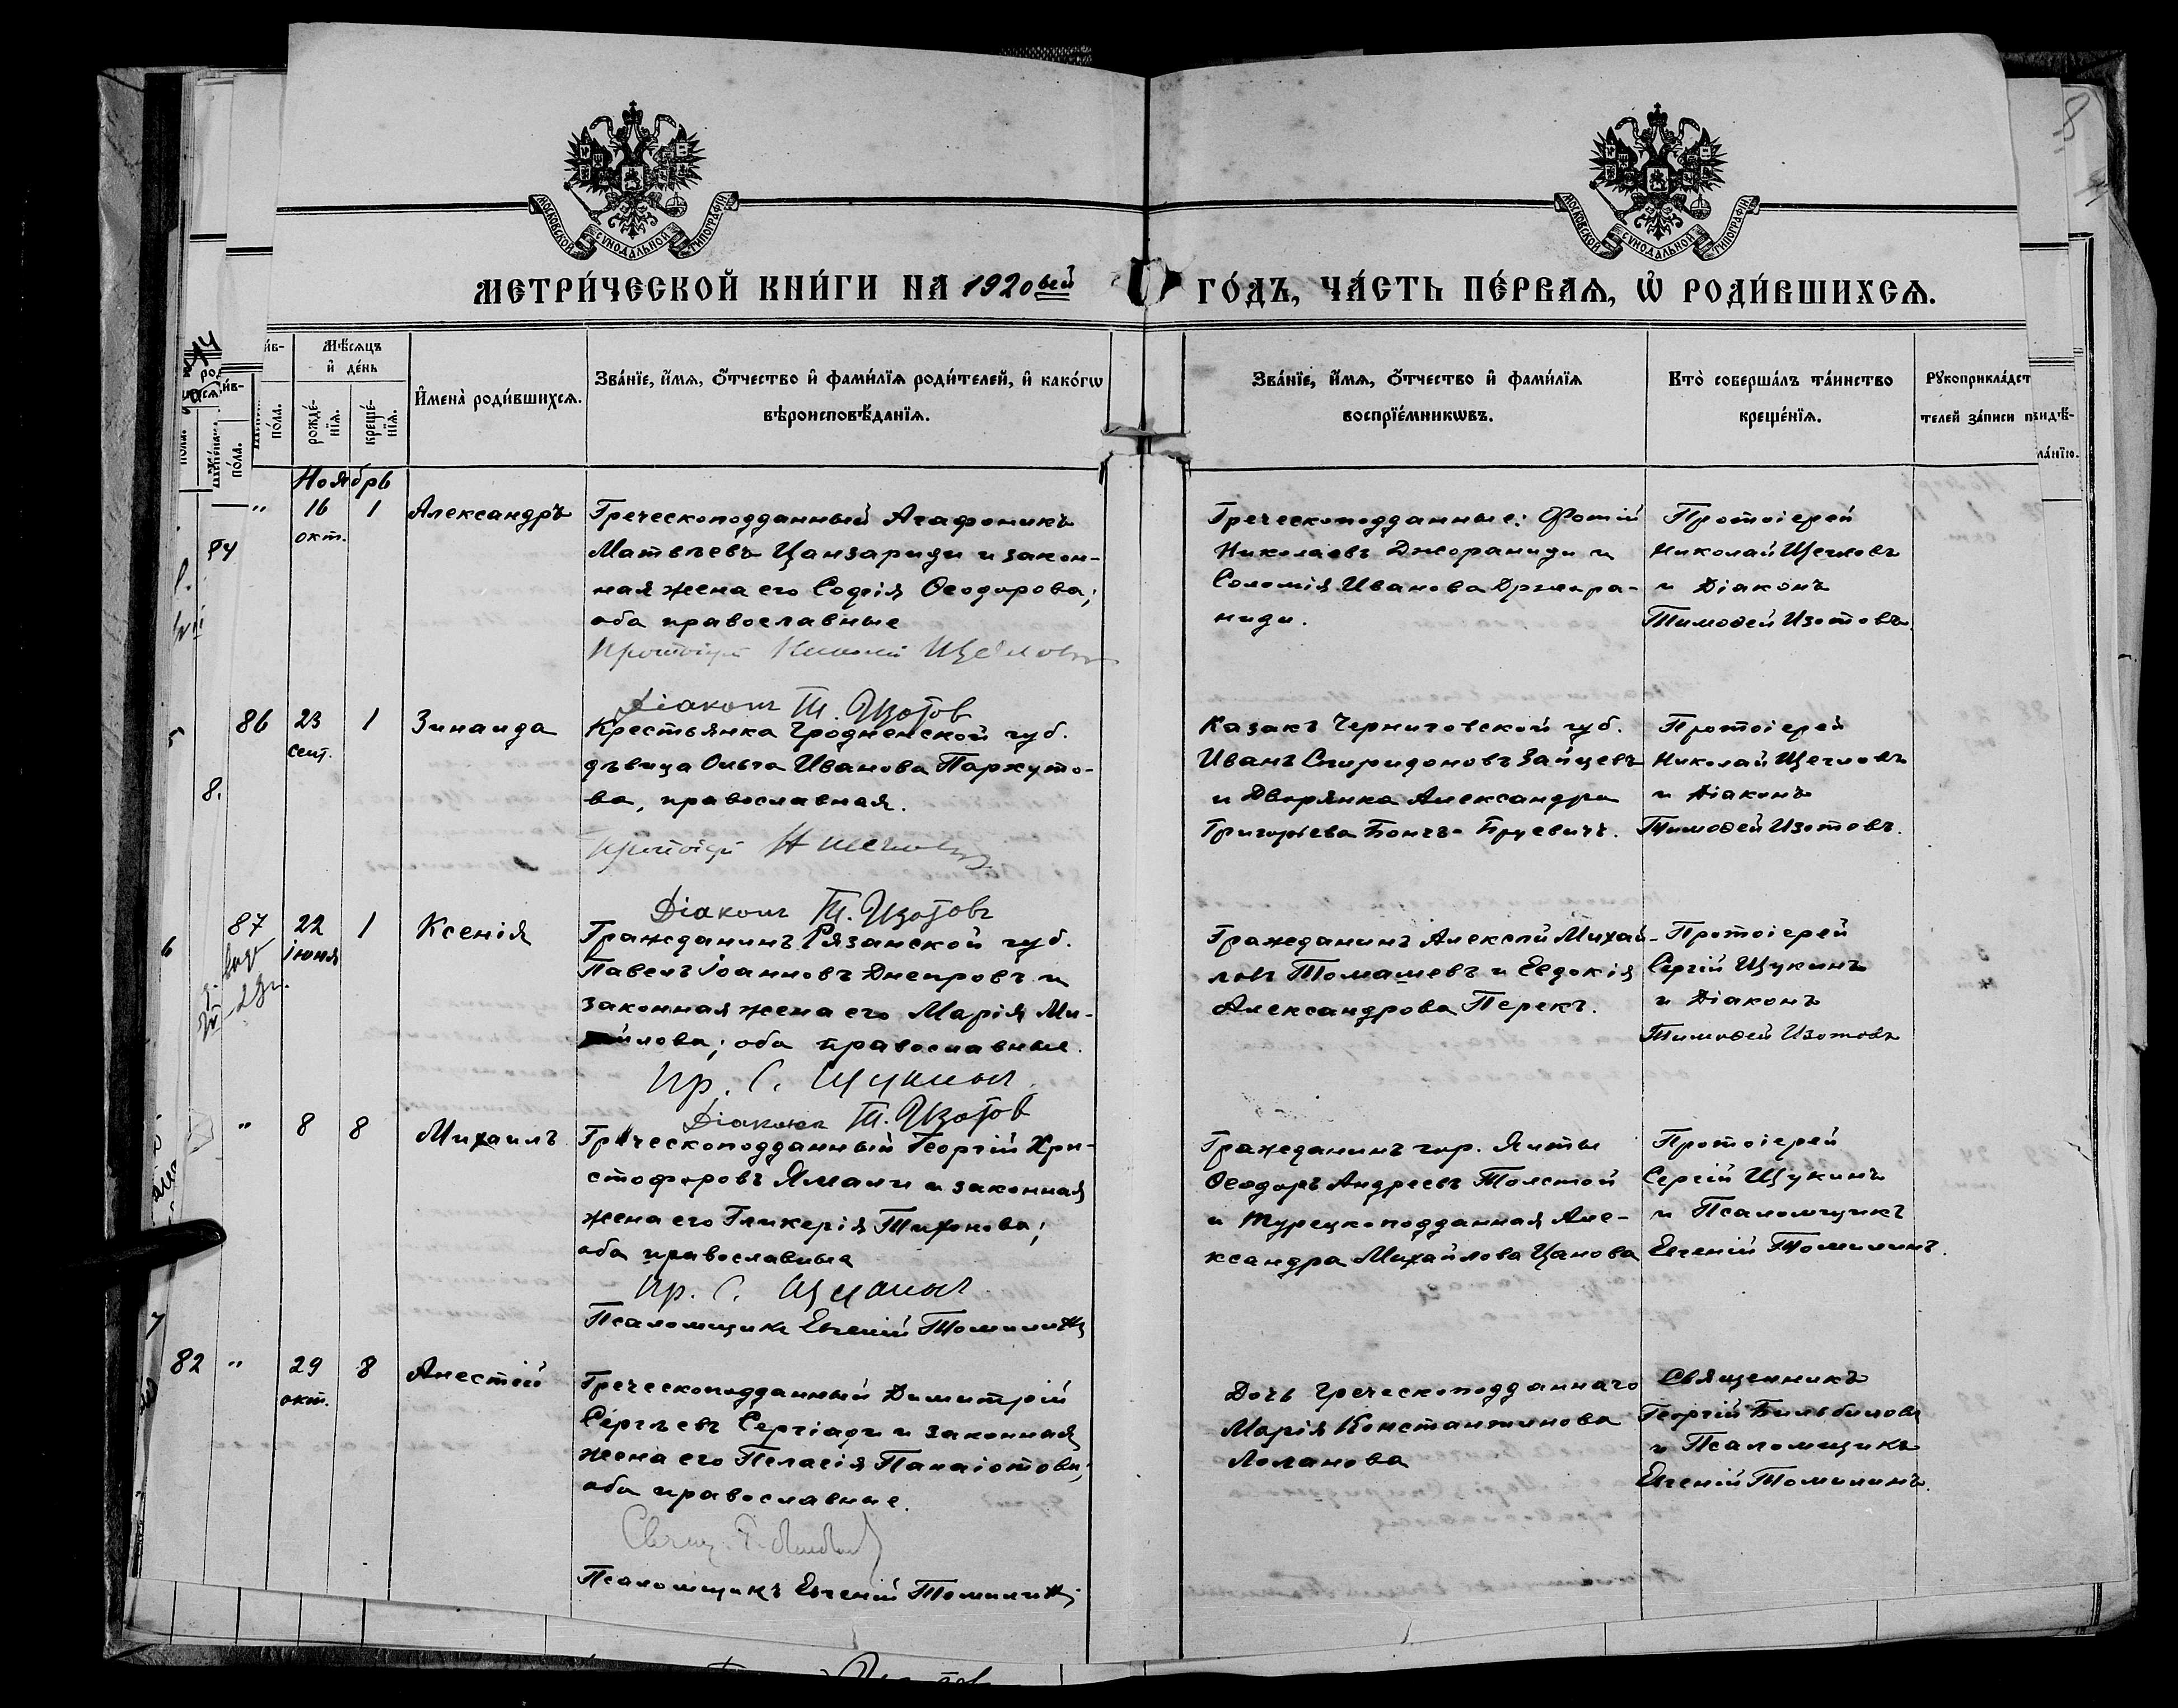 МОСКОВСКОЙ СѴНОДАЛЬНОЙ ТИПОГРАФІИ
МОСКОВСКОЙ СѴНОДАЛЬНОЙ ТИПОГРАФІИ
МЕТРИ́ЧЕСКОЙ КНИ́ГИ НА 1920вый ГО́ДЪ, ЧА́СТЬ ПЕ́РВАѦ, Ѽ РОДИ́ВШИХСѦ.
Мѣ́сѧцъ и҆ де́нь
рожде́-нїѧ.
креще́-нїѧ.
И҆мена̀ роди́вшихсѧ.
Зва́нїе, и҆́мѧ, ѻ҆́тчество и҆ фами́лїѧ роди́телей, и҆ како́гѡ
вѣроисповѣ́данїѧ.
Зва́нїе, и҆́мѧ, ѻ҆́тчество и҆ фами́лїѧ
воспрїе́мникѡвъ.
Кто̀ соверша́лъ та́инство
креще́нїѧ.
Рꙋкоприкла́дст
телей за́писи
по́ла.
по́ла.
Ноябрь
" 16 окт. 1 Александръ
Греческоподданный Агафоникъ
Матвѣевъ Цанзариди и закон-
ная жена его Софія Ѳеодорова;
оба православные
Протоіерей Николай Щегловъ
Діаконъ Т. Изотов
Греческоподданные: Фотій
Николаевъ Джораниди и
Соломія Иванова Джора-
ниди.
Протоіерей
Николай Щегловъ
и Діаконъ
Тимоѳей Изотовъ.
86 23 сент. 1 Зинаида
Крестьянка Гродненской губ.
дѣвица Ольга Иванова Пархуто-
ва, православная.
Протоіерей Н Щегловъ
Діаконъ Т. Изотовъ
Казакъ Черниговской губ.
Иванъ Спиридоновъ Зайцевъ
и Дворянка Александра
Григорьева Бончъ-Бруевичъ.
Протоіерей
Николай Щегловъ
и Діаконъ
Тимоѳей Изотовъ.
87 22 іюня 1 Ксенія
Гражданинъ Рязанской губ.
Павелъ Іоанновъ Днепровъ и
законная жена его Марія Ми-
йлова; оба православные.
Пр. С. Щукинъ
Діаконъ Т. Изотов
Гражданинъ Алексѣй Михай-
ловъ Томашевъ и Евдокія
Александрова Перекъ.
Протоіерей
Сергій Щукинъ
и Діаконъ
Тимоѳей Изотовъ
" 8 8 Михаилъ
Греческоподданный Георгій Хри-
стофоровъ Ямали и законная
жена его Гликерія Тихонова;
оба православные
Пр. С. Щукинъ
Псаломщикъ Евгеній Томилинъ
Гражданинъ гор. Ялты
Ѳеодоръ Андреевъ Толстой
и турецкоподданная Але-
ксандра Михайлова Цанова
Протоіерей
Сергій Щукинъ
и Псаломщикъ
Евгеній Томилинъ.
82 " 29 окт. 8 Анестій
Греческоподданный Димитрій
Сергѣевъ Сергіади и законная
жена его Пелагія Панаіотова;
оба православные.
Псаломщикъ Евгеній Томилинъ
Дочь греческоподданнаго
Марія Константинова
Лоланова
Священникъ
Георгій Бильбиловъ
и Псаломщикъ
Евгеній Томилинъ.